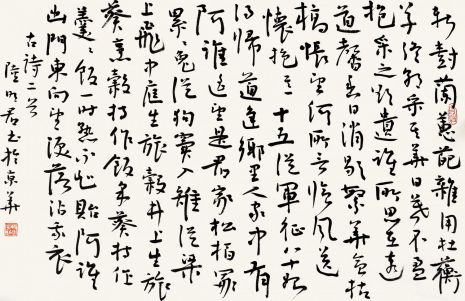 新樹蘭蕙葩雜用杜蘅
草終朝采其華日暮不盈
抱采之欲遺誰所思在遠
道馨香易消歇繁華會枯
槁悵望何所言臨風送
懷抱 十五從軍征八十始
得歸道逢鄉里人家中有
阿誰遙望是君家松柏冢
累々兔從狗竇入雉從梁
上飛中庭生旅穀井上生旅
葵烹穀持作飯采葵持作
羹々飯一時熟不知貽阿誰
出門東向望淚落沾我衣
古詩二首
陸明君書於京華